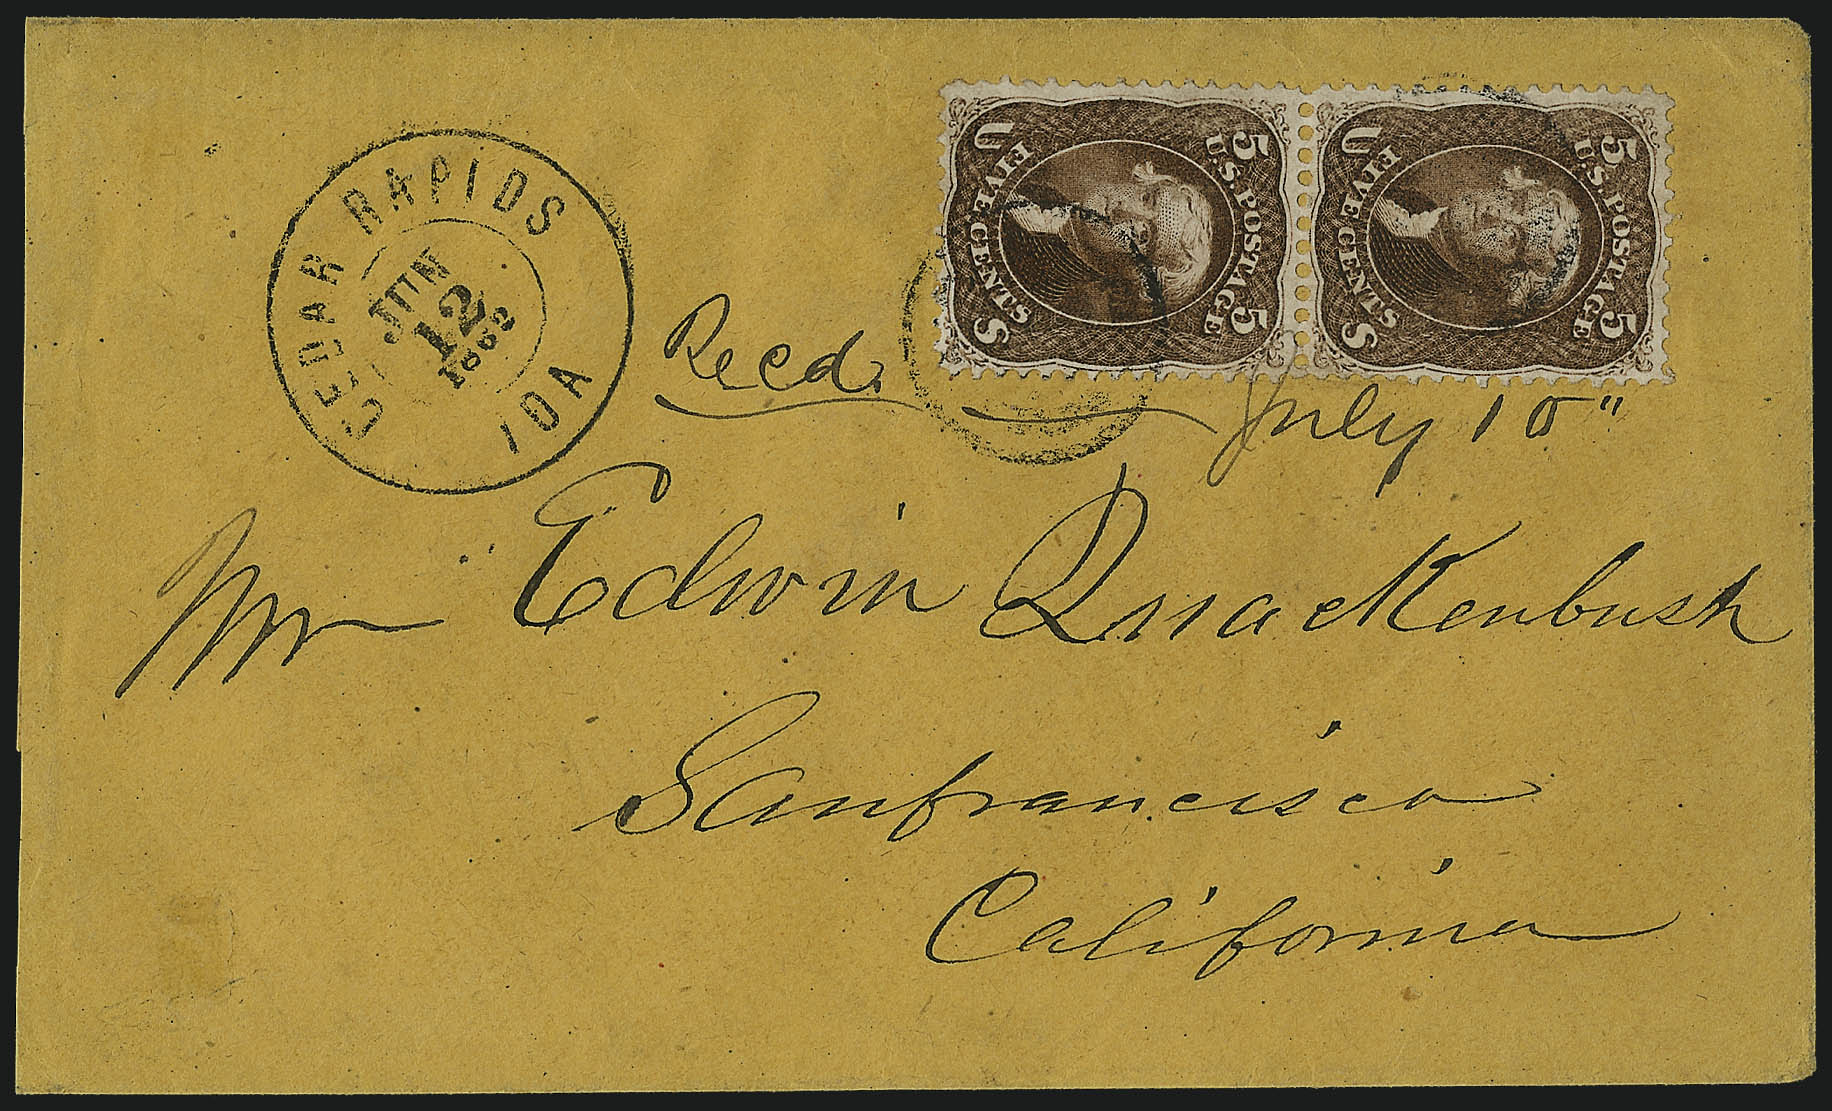 CEDAR RAPIDS
IOA
JUN
12
1863
U 5
FIVE CENTS
U.S. POSTAGE
S 5
U 5
FIVE CENTS
U.S. POSTAGE
S 5
Recd. July 10"
Mr Edwin Quackenbush
Sanfrancisco
California